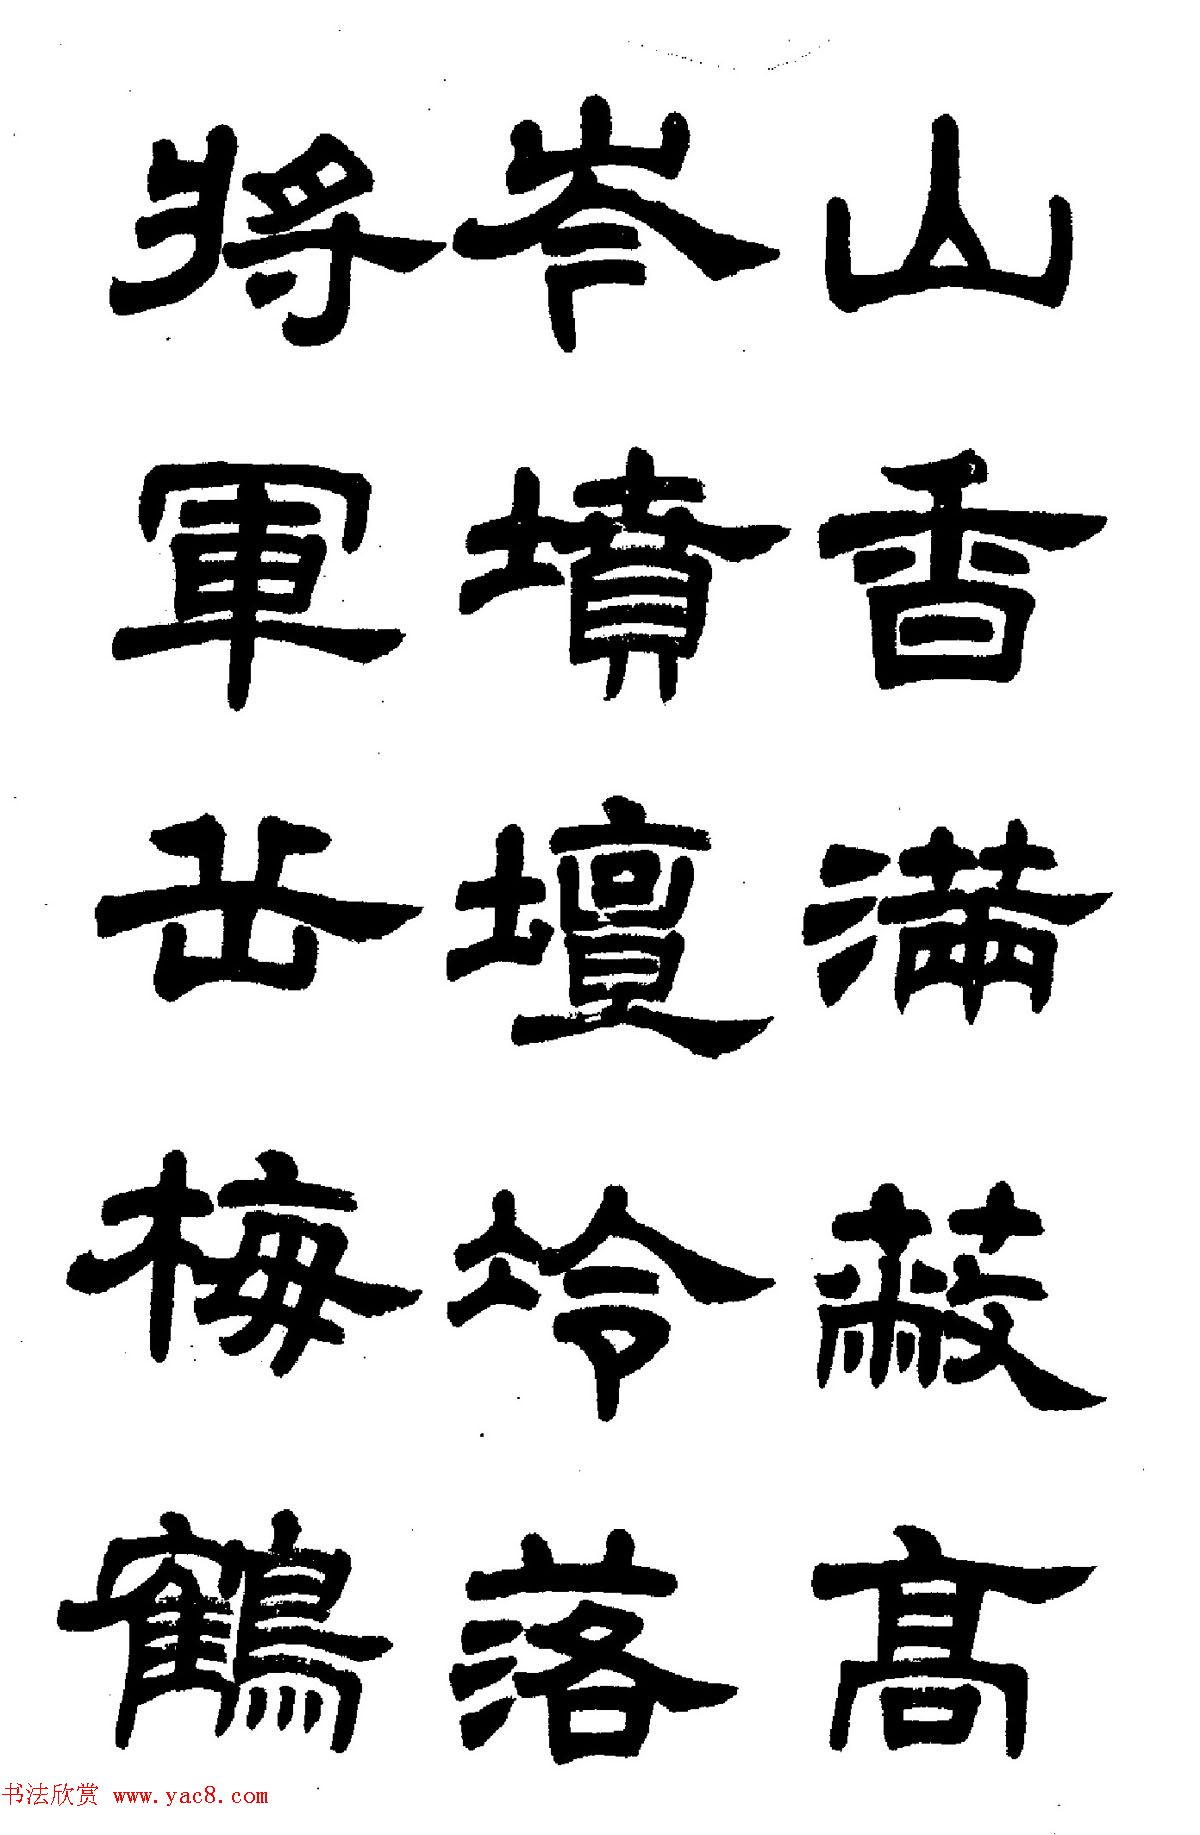 山香滿蔽高
岑墳壇坽落
將軍岳梅鶴
书法欣赏 www.yac8.com